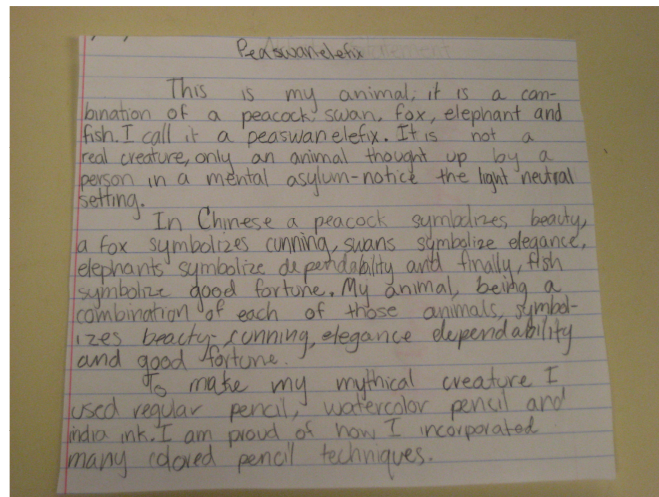 Peaswanelefix
This is my animal, it is a com-
bination of a peacock, swan, fox, elephant and
fish. I call it a peaswanelefix. It is not a
real creature, only an animal thought up by a
person in a mental asylum-notice the light neutral
setting.
In Chinese a peacock symbolizes beauty,
a fox symbolizes cunning, swans symbolize elegance,
elephants symbolize dependability and finally, fish
symbolize good fortune. My animal, being a
combination of each of those animals, symbol-
izes beauty, cunning, elegance dependability
and good fortune.
To make my mythical creature I
used regular pencil, watercolor pencil and
india ink. I am proud of how I incorporated
many colored pencil techniques.